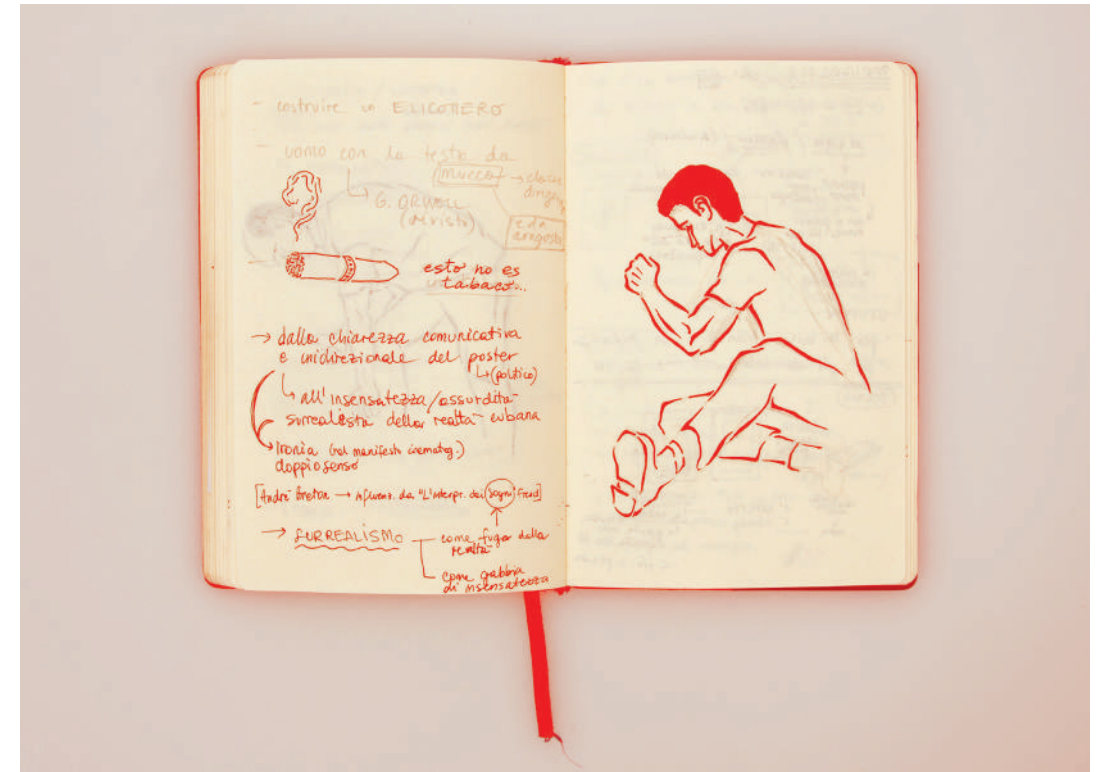 - costruire un ELICOTTERO
- uomo con la testa da
mucca → classe
dirig.
↳ G. ORWELL
(rivisto)
e da
aragosta
esto no es
tabaco...
→ dalla chiarezza comunicativa
e unidirezionale del poster
↳ (politico)
↳ all'insensatezza/assurdità
surrealista della realtà cubana
→ Ironia (nel manifesto cinematog.)
doppio senso
[André Breton → influenz. da "L'interpr. dei sogni" Freud]
→ SURREALISMO
come fuga dalla
realtà
come gabbia
di insensatezza